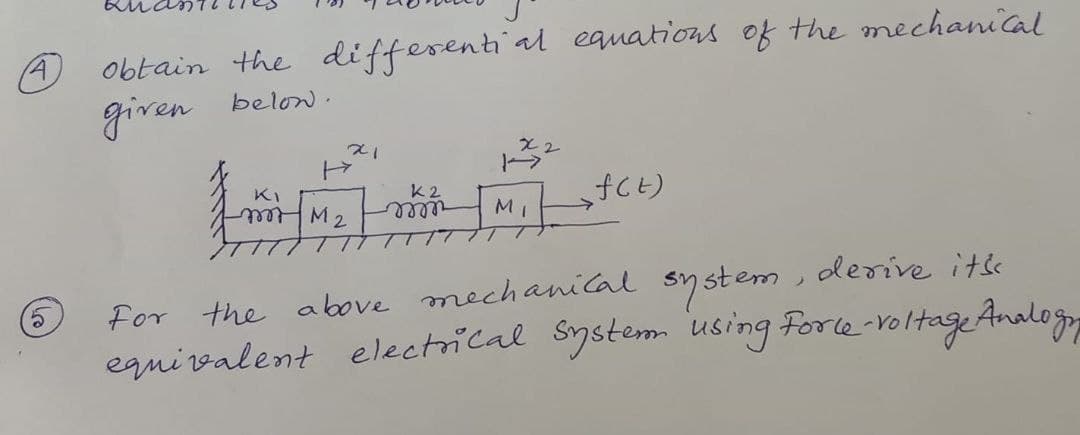 ④ obtain the differential equations of the mechanical
given below.
x1 x2
K1 M2 K2 M1 f(t)
⑤ For the above mechanical system, derive its
equivalent electrical system using Force-voltage Analogy